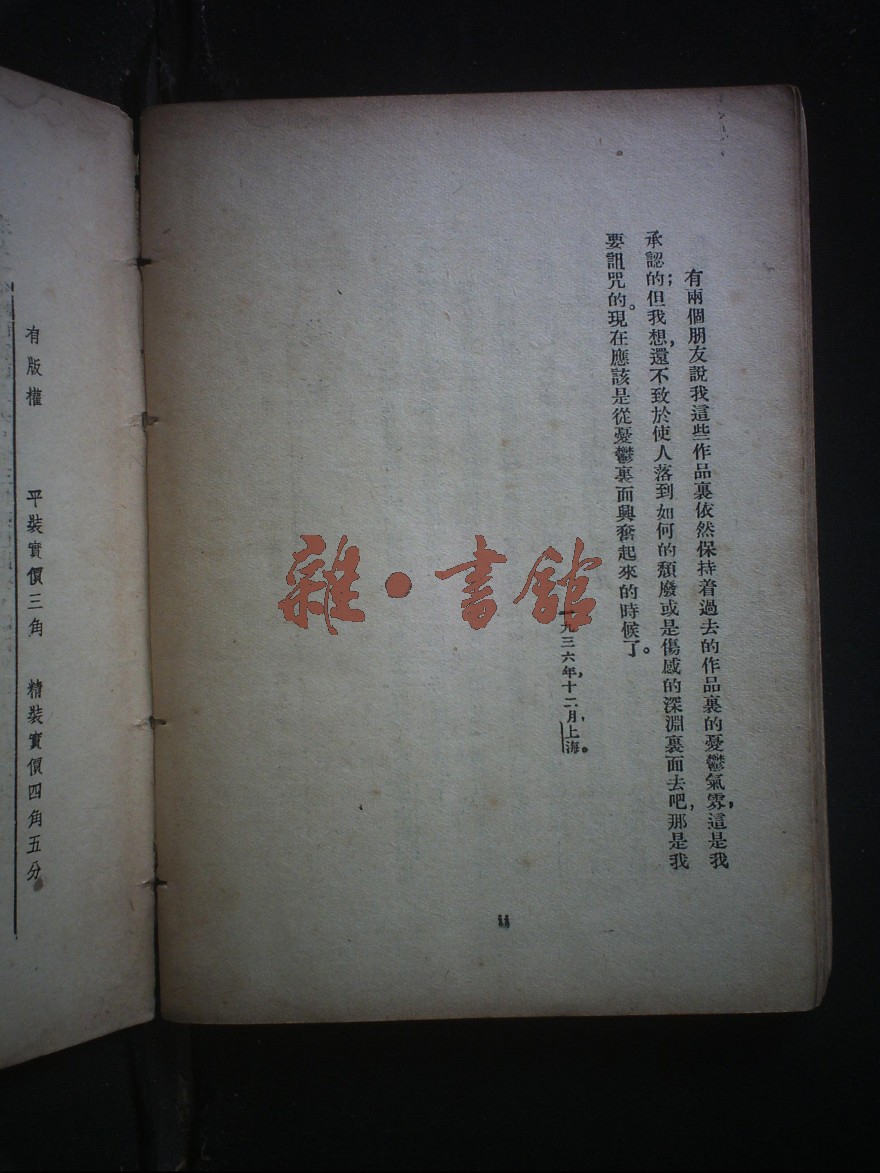 有兩個朋友說我這些作品裏依然保持着過去的作品裏的憂鬱氣雰，這是我
承認的；但我想，還不致於使人落到如何的頽廢或是傷感的深淵裏面去吧，那是我
要詛咒的。現在應該是從憂鬱裏面興奮起來的時候了。
一九三六年，十二月，上海。
雜·書館
有版權 平裝實價三角 精裝實價四角五分